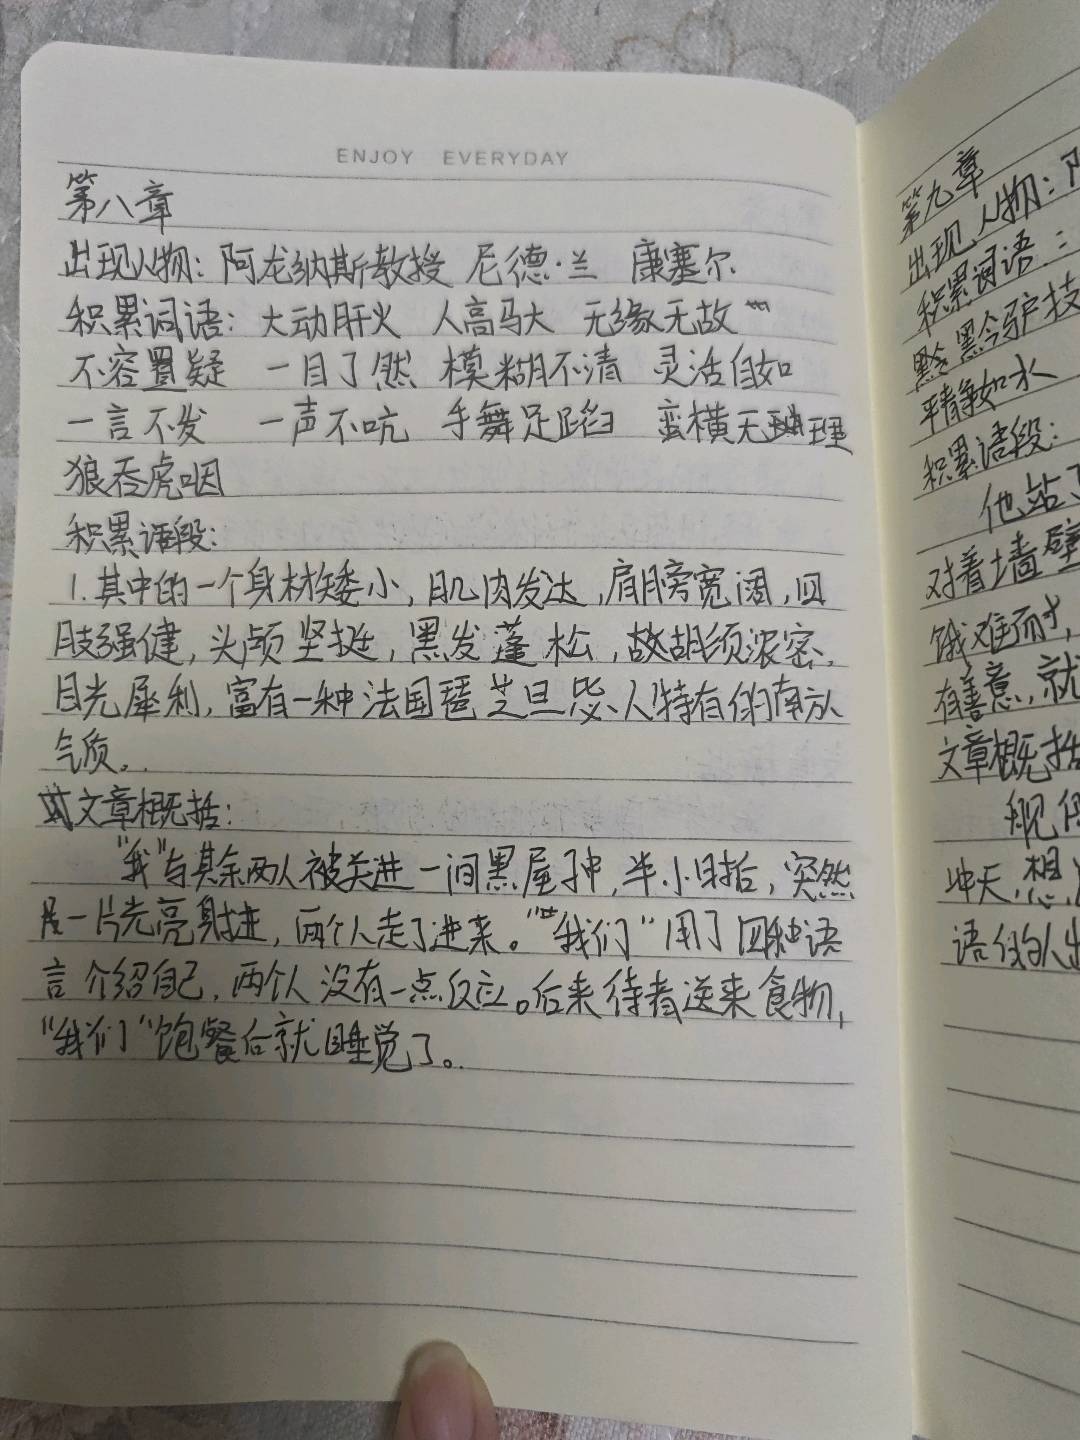 ENJOY EVERYDAY
第八章
出现人物：阿龙纳斯教授 尼德·兰 康塞尔
积累词语：大动肝火 人高马大 无缘无故
不容置疑 一目了然 模糊不清 灵活自如
一言不发 一声不吭 手舞足蹈 蛮横无理
狼吞虎咽
积累语段：
1.其中的一个身材矮小，肌肉发达，肩膀宽阔，四
肢强健，头颅坚挺，黑发蓬松，胡须浓密，
目光犀利，富有一种法国普罗旺斯人特有的南方
气质。
文章概括：
“我”与其余两人被关进一间黑屋子中，半小时后，突然
一片光亮射进，两个人走了进来。“我们”用了四种语
言介绍自己，两个人没有一点反应。后来侍者送来食物，
“我们”饱餐后就睡觉了。
第九章
出现人物：阿
积累词语：
黔驴技
平静如水
积累语段：
他站了
对着墙壁
饿难耐，
有善意，就
文章概括
冲天，想
语的人出